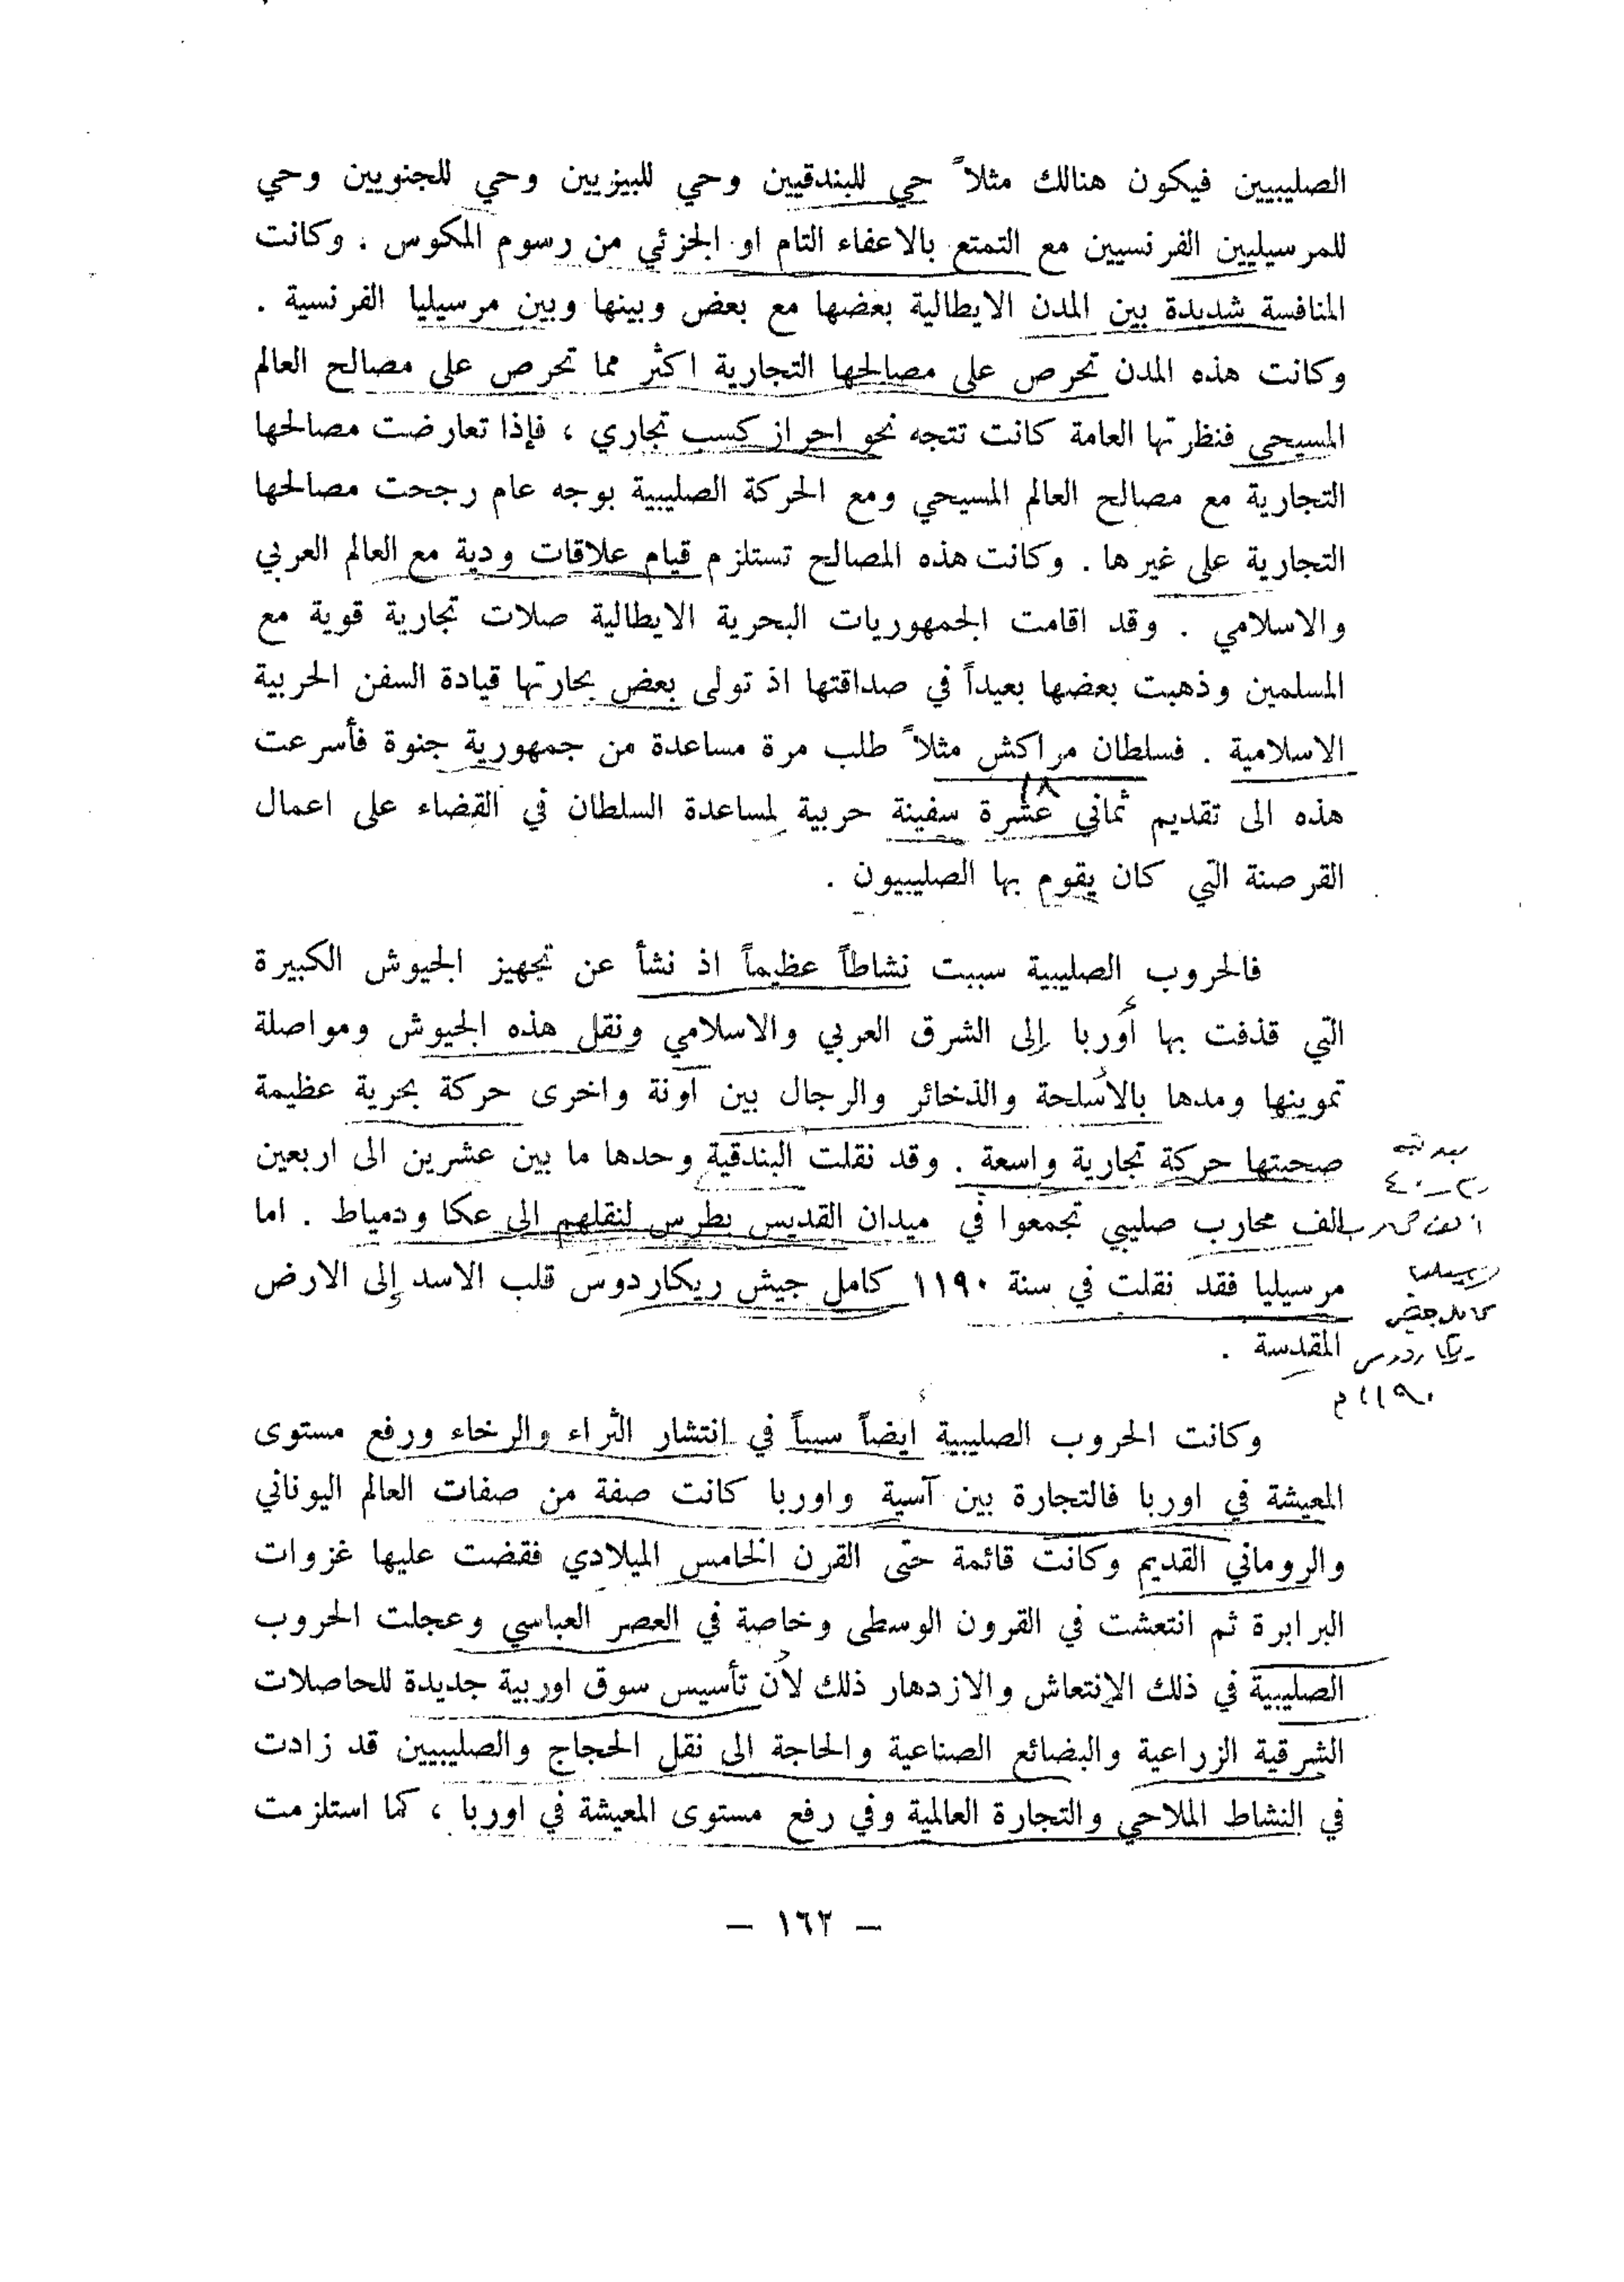 الصليبيين فيكون هنالك مثلاً حي للبندقيين وحي للبيزيين وحي للجنويين وحي
للمرسيليين الفرنسيين مع التمتع بالاعفاء التام او الجزئي من رسوم المكوس . وكانت
المنافسة شديدة بين المدن الايطالية بعضها مع بعض وبينها وبين مرسيليا الفرنسية .
وكانت هذه المدن تحرص على مصالحها التجارية اكثر مما تحرص على مصالح العالم
المسيحي فنظرتها العامة كانت تتجه نحو احراز كسب تجاري ، فإذا تعارضت مصالحها
التجارية مع مصالح العالم المسيحي ومع الحركة الصليبية بوجه عام رجحت مصالحها
التجارية على غيرها . وكانت هذه المصالح تستلزم قيام علاقات ودية مع العالم العربي
والاسلامي . وقد اقامت الجمهوريات البحرية الايطالية صلات تجارية قوية مع
المسلمين وذهبت بعضها بعيداً في صداقتها اذ تولى بعض بحارتها قيادة السفن الحربية
الاسلامية . فسلطان مراكش مثلاً طلب مرة مساعدة من جمهورية جنوة فأسرعت
١٨
هذه الى تقديم ثماني عشرة سفينة حربية لمساعدة السلطان في القضاء على اعمال
القرصنة التي كان يقوم بها الصليبيون .
فالحروب الصليبية سببت نشاطاً عظيماً اذ نشأ عن تجهيز الجيوش الكبيرة
التي قذفت بها أوربا إلى الشرق العربي والاسلامي ونقل هذه الجيوش ومواصلة
تموينها ومدها بالأسلحة والذخائر والرجال بين آونة واخرى حركة بحرية عظيمة
صحبتها حركة تجارية واسعة . وقد نقلت البندقية وحدها ما بين عشرين الى اربعين
٢٠ – ٤٠
الف محارب صليبي تجمعوا في ميدان القديس بطرس لنقلهم الى عكا ودمياط . اما
مرسيليا فقد نقلت في سنة ١١٩٠ كامل جيش ريكاردوس قلب الاسد إلى الارض
مرسيليا
كامل جيش
المقدسة .
ريكاردوس
١١٩٠م
وكانت الحروب الصليبية أيضاً سبباً في انتشار الثراء والرخاء ورفع مستوى
المعيشة في اوربا فالتجارة بين آسية واوربا كانت صفة من صفات العالم اليوناني
والروماني القديم وكانت قائمة حتى القرن الخامس الميلادي فقضت عليها غزوات
البرابرة ثم انتعشت في القرون الوسطى وخاصة في العصر العباسي وعجلت الحروب
الصليبية في ذلك الإنتعاش والازدهار ذلك لأن تأسيس سوق اوربية جديدة للحاصلات
الشرقية الزراعية والبضائع الصناعية والحاجة الى نقل الحجاج والصليبيين قد زادت
في النشاط الملاحي والتجارة العالمية وفي رفع مستوى المعيشة في اوربا ، كما استلزمت
– ١٦٢ –